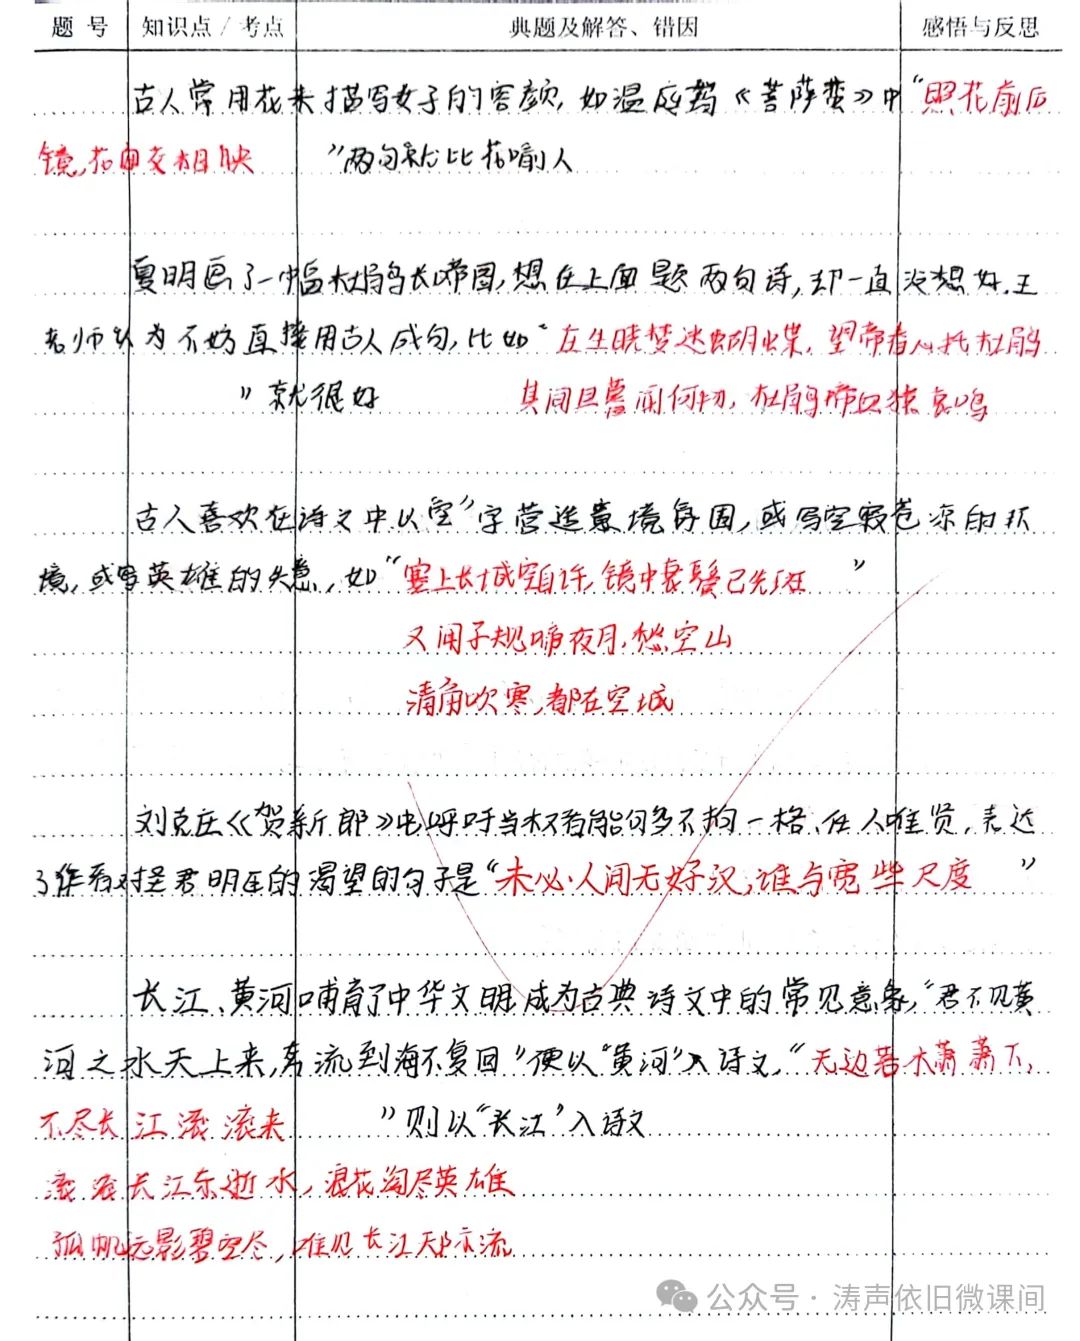 题号 知识点/考点 典题及解答、错因 感悟与反思
古人常用花来描写女子的容颜，如温庭筠《菩萨蛮》中“照花前后
镜，花面交相映 ”两句就比花喻人
夏明画了一幅杜鹃鸟长啼图，想在上面题两句诗，却一直没想好.王
老师认为不妨直接用古人成句，比如“庄生晓梦迷蝴蝶，望帝春心托杜鹃
”就很好 其间旦暮闻何物，杜鹃啼血猿哀鸣
古人喜欢在诗文中以“空”字营造意境氛围，或写空寂苍凉的环
境，或写英雄的失意，如“塞上长城空自许，镜中衰鬓已先斑 ”
又闻子规啼夜月，愁空山
清角吹寒，都在空城
刘克庄《贺新郎》中呼吁当权者能够多不拘一格、任人唯贤，表达
了作者对圣君明臣的渴望的句子是“未必人间无好汉，谁与宽些尺度 ”
长江、黄河哺育了中华文明，成为古典诗文中的常见意象，“君不见黄
河之水天上来，奔流到海不复回”便以“黄河”入诗文，“无边落木萧萧下，
不尽长江滚滚来 ”则以“长江”入诗文
滚滚长江东逝水，浪花淘尽英雄
孤帆远影碧空尽，唯见长江天际流
公众号·涛声依旧微课间